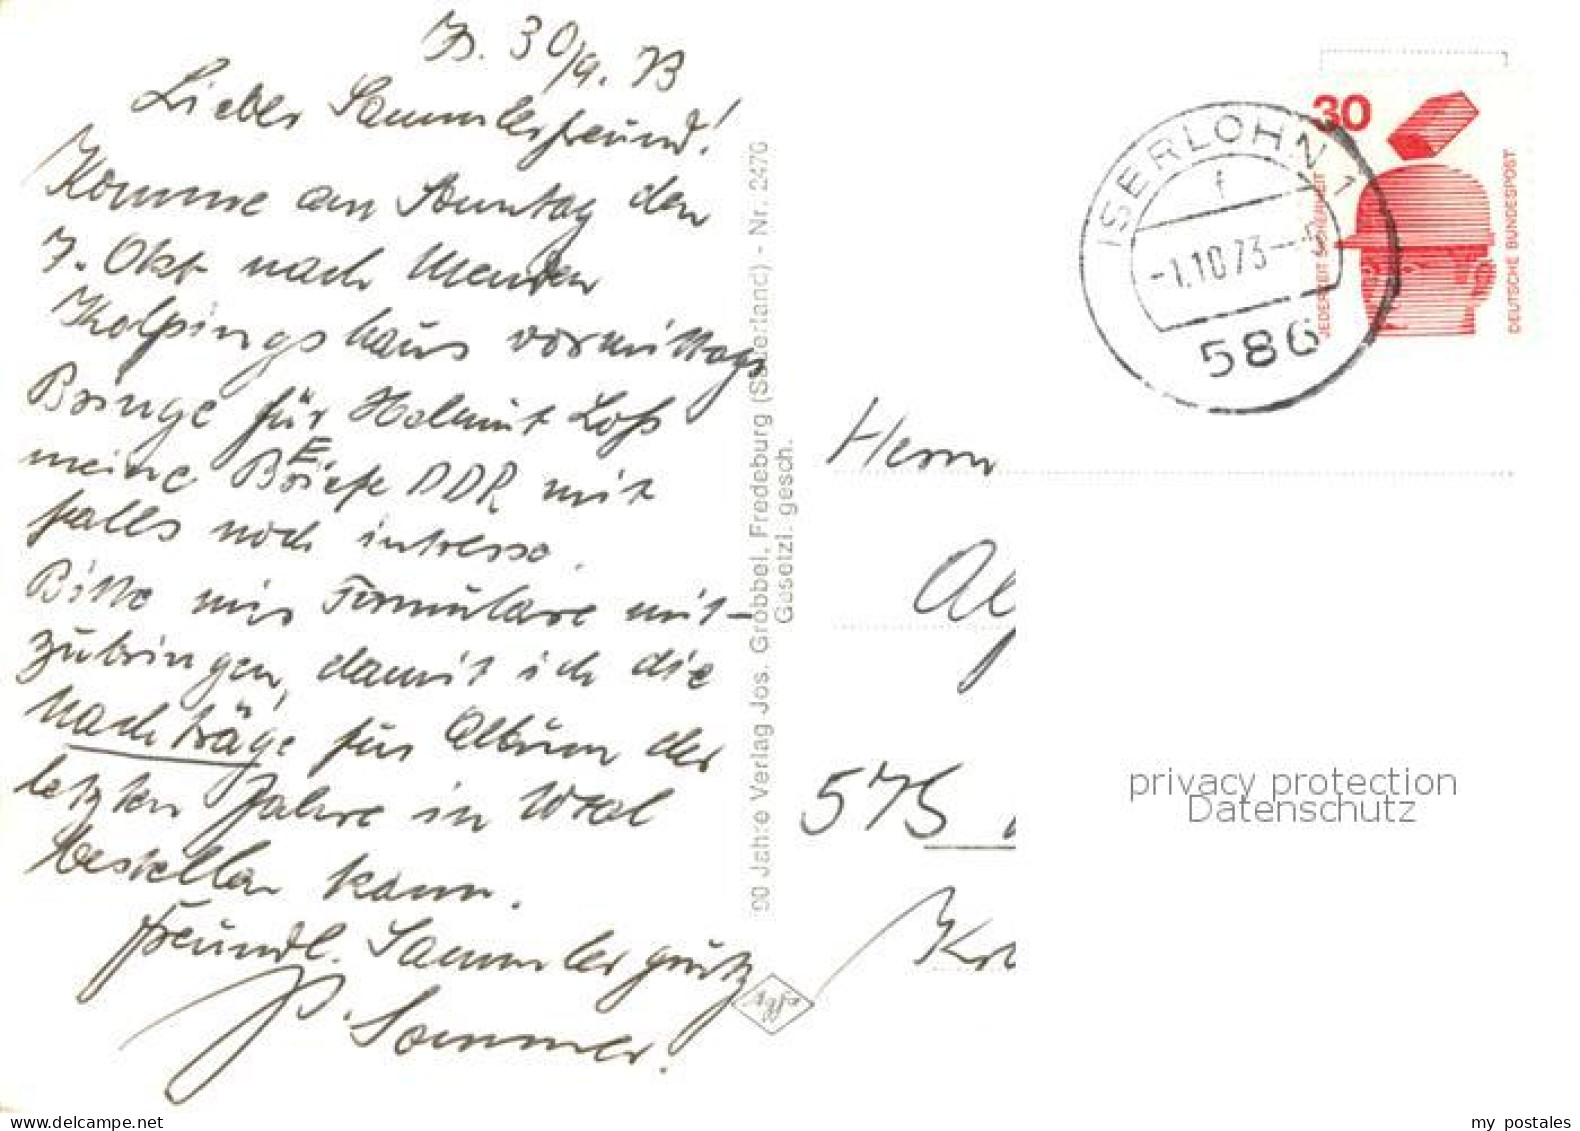 Is. 30/9. 73
Lieber Sammlerfreund!
Komme am Sonntag den
7. Okt nach Menden
Kolpingshaus vormittags
Bringe für Helmut Loß
meine Briefe DDR mit
E
falls noch intresse.
Bitte mir Formulare mit-
zubringen, damit ich die
Nachträge für Album der
letzten Jahre in
bestellen kann.
Freundl. Sammlergruß
P. Sommer.
90 Jahre Verlag Jos. Grobbel, Fredeburg (Sauerland) - Nr. 2470
Gesetzl. gesch.
Agfa
ISERLOHN 1
f
-1.10.73
586
30
JEDERZEIT SICHERHEIT
DEUTSCHE BUNDESPOST
Herrn
575
privacy protection
Datenschutz
my postales
www.delcampe.net